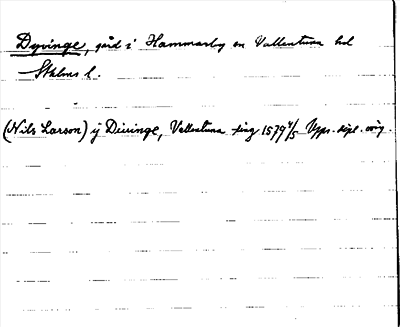 Dyvinge, gård i Hammarby sn Vallentuna hd
Sthlms l.
(Nils Larson) ij Diuinge, Vallentuna ting 1579 4/5 Upps. dipl. orig.